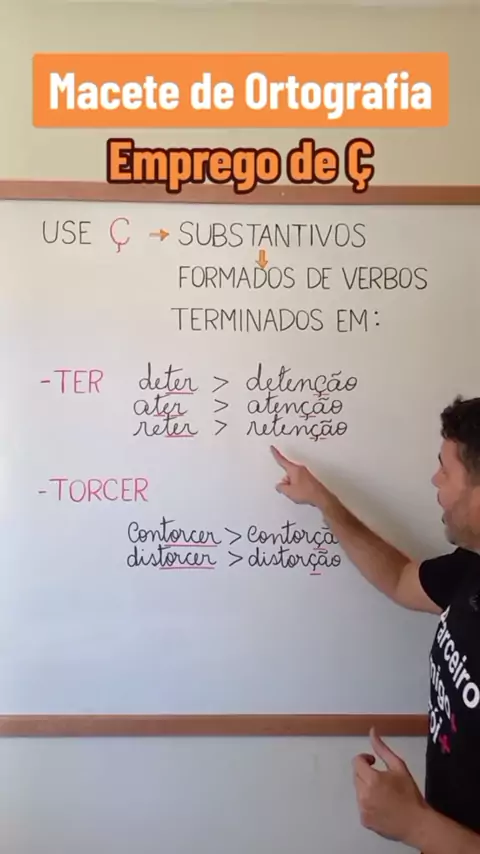 Macete de Ortografia
Emprego de Ç
USE Ç → SUBSTANTIVOS
↓
FORMADOS DE VERBOS
TERMINADOS EM:
-TER deter > detenção
ater > atenção
reter > retenção
-TORCER
Contorcer > Contorçã
distorcer > distorção
Parceiro